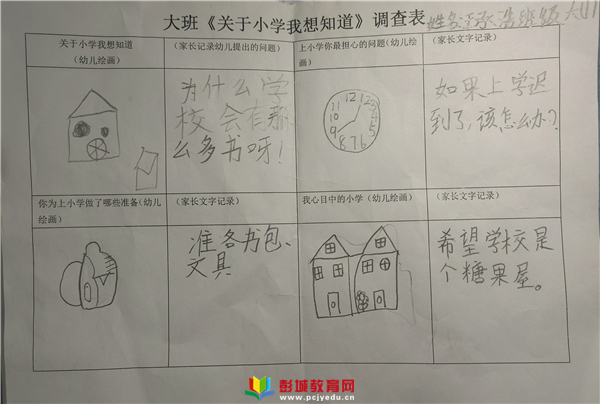 大班《关于小学我想知道》调查表
姓名: 班级 大
关于小学我想知道
(幼儿绘画)
(家长记录幼儿提出的问题)
为什么学
校会有那
么多书呀!
上小学你最担心的问题(幼儿绘画)
11 12 12 3
10 4
9 5
8 7 6
(家长文字记录)
如果上学迟
到了,该怎么办?
你为上小学做了哪些准备(幼儿绘画)
(家长文字记录)
准备书包、
文具
我心目中的小学(幼儿绘画)
(家长文字记录)
希望学校是
个糖果屋。
彭城教育网
www.pcjyedu.cn